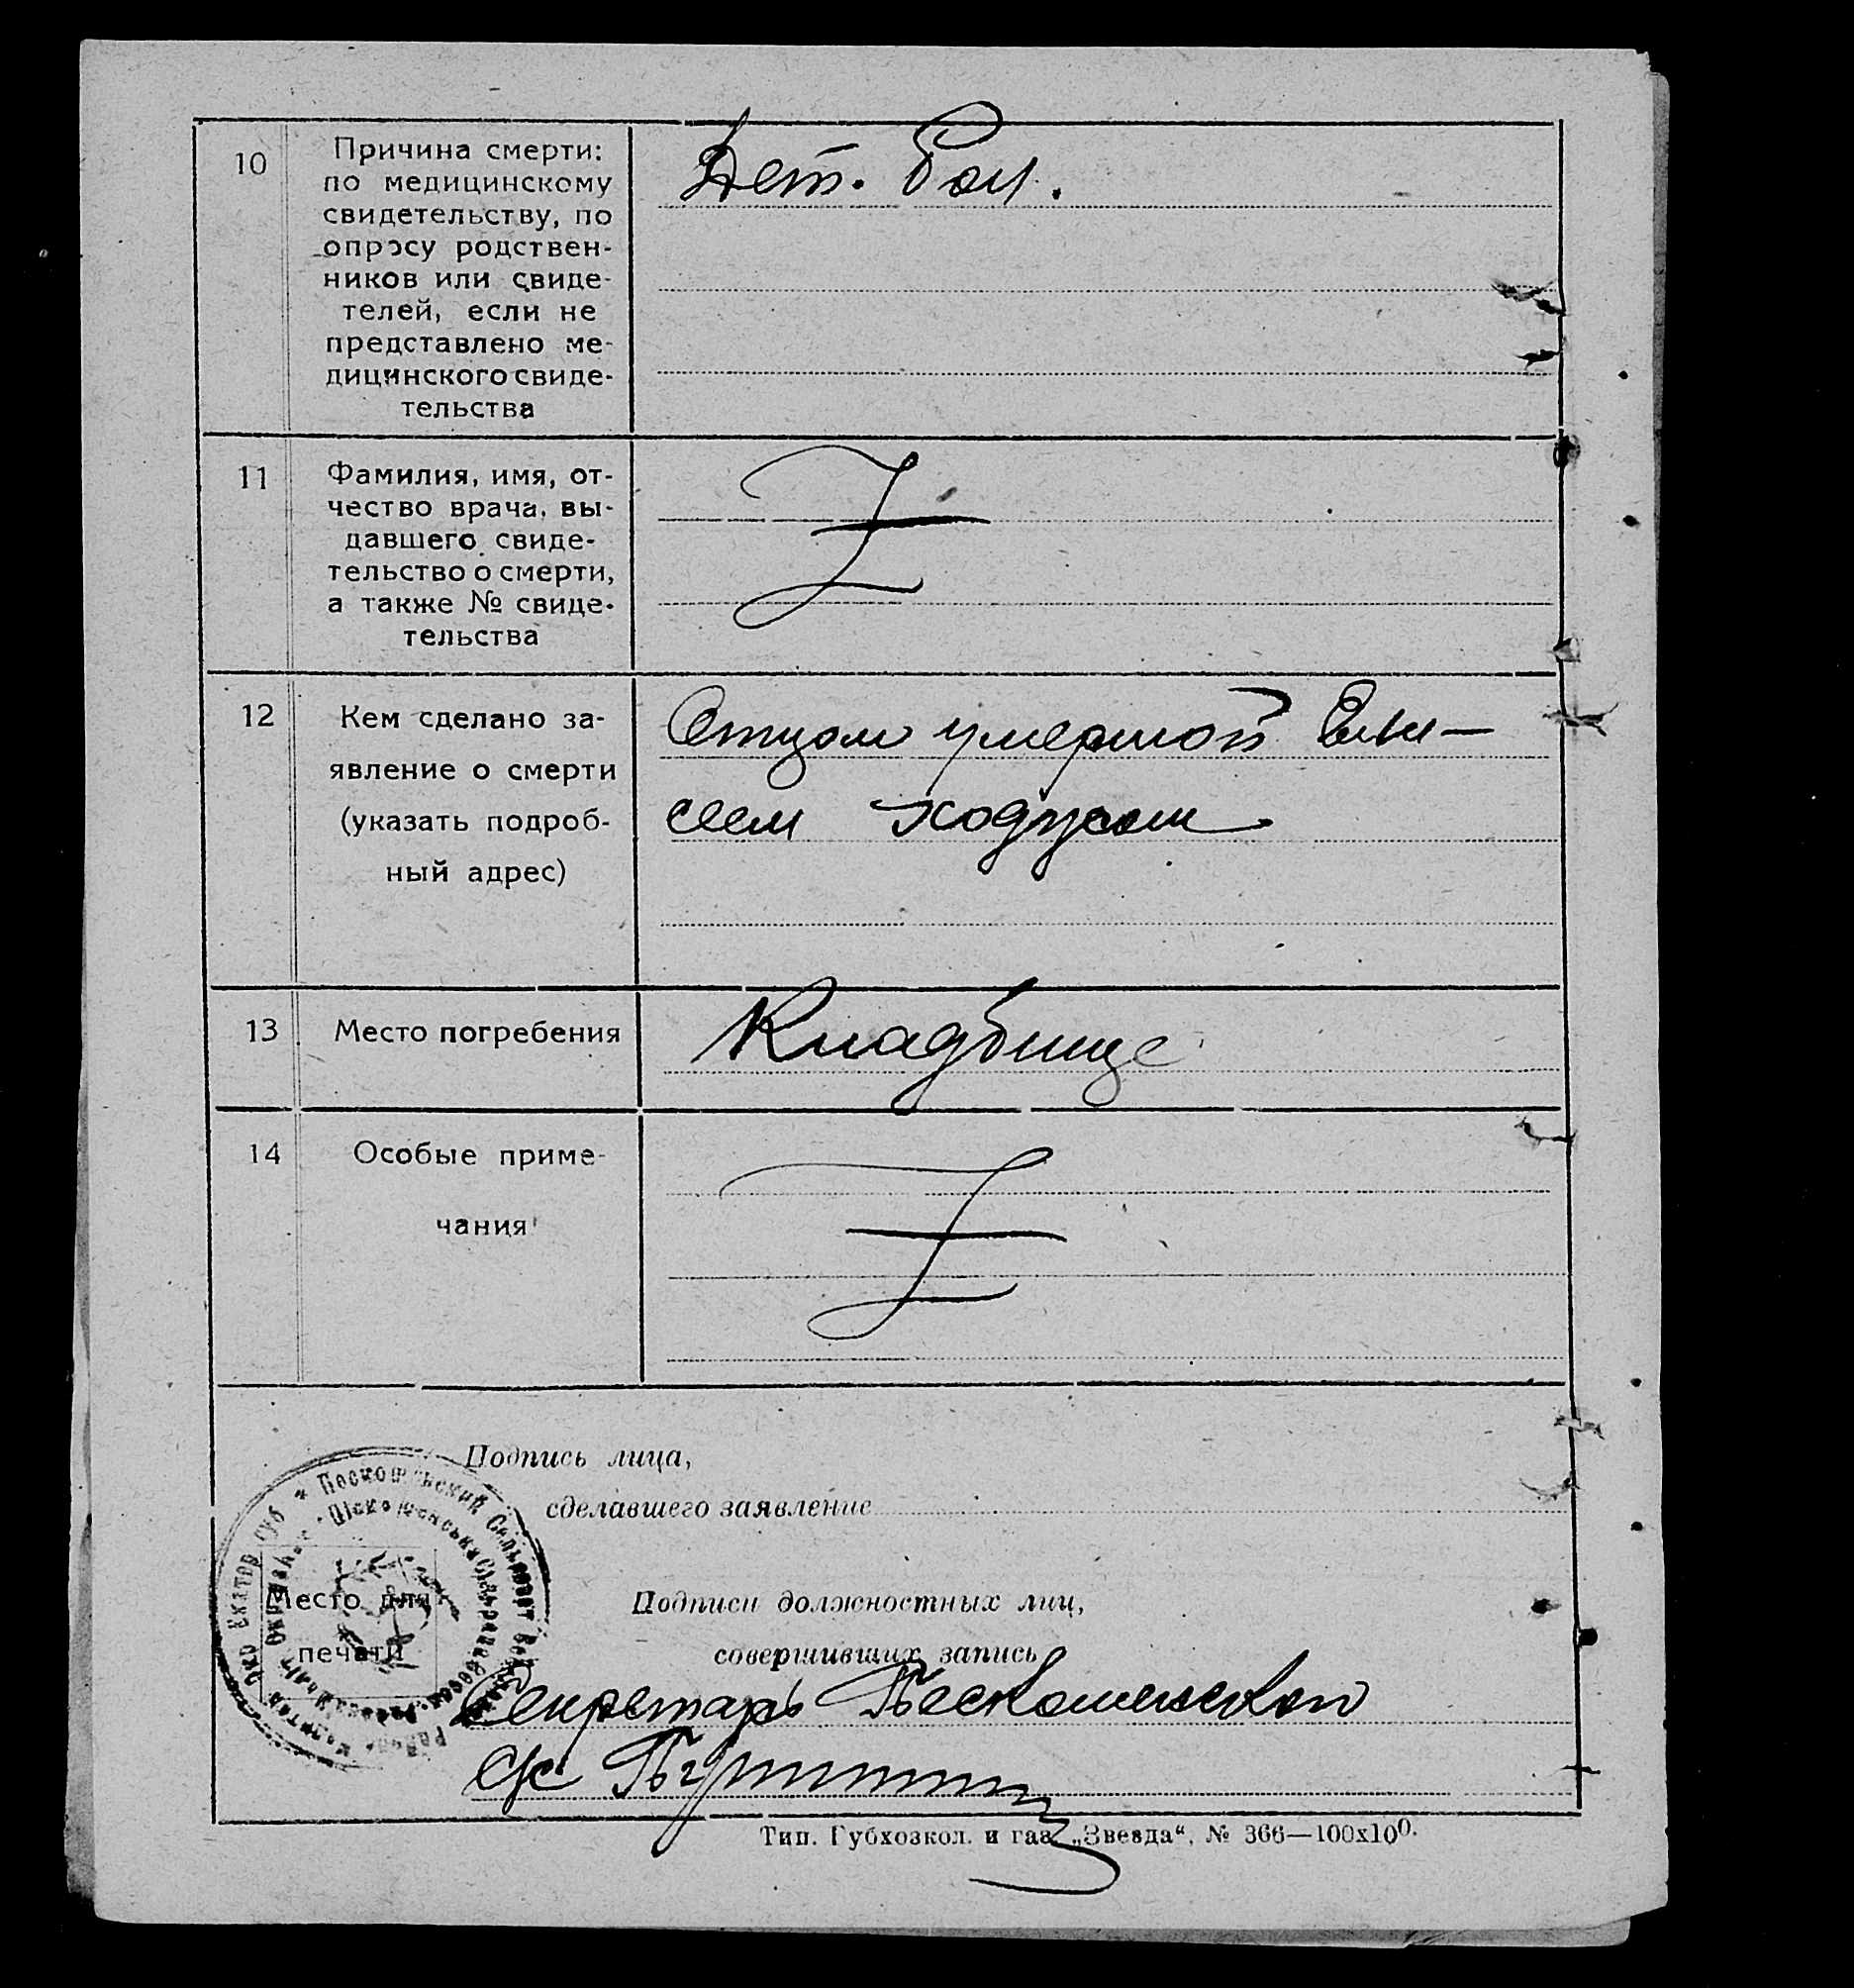 10
Причина смерти:
по медицинскому
свидетельству, по
опросу родствен-
ников или свиде-
телей, если не
представлено ме-
дицинского свиде-
тельства
Дет. бол.
11
Фамилия, имя, от-
чество врача, вы-
давшего свиде-
тельство о смерти,
а также № свиде-
тельства
Z
12
Кем сделано за-
явление о смерти
(указать подроб-
ный адрес)
Отцом умершой Ели-
сеем Ходусом
13
Место погребения
Кладбище
14
Особые приме-
чания
Z
Подпись лица,
сделавшего заявление
Место для
печати
Подписи должностных лиц,
совершивших запись
Секретарь
с/с
Тип. Губхозкол. и газ. „Звезда“, № 366—100х100.